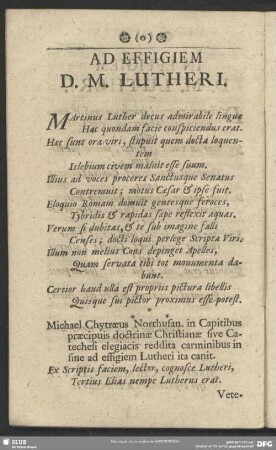 (6)
AD EFFIGIEM
D. M. LUTHERI.
MArtinus Luther decus admirabile linguæ
Hac quondam facie conspiciendus erat.
Hæc sunt ora viri, stupuit quem docta loquen-
tem
Islebium civem maluit esse suum.
Illius ad voces proceres Sanctusque Senatus
Contremuit; motus Cæsar & ipse fuit.
Eloquio Romam domuit gentesque feroces,
Tybridis & rapidas sæpe reflexit aquas.
Verum si dubitas, & te sub imagine falli
Censes; docti loqui perlege Scripta Viri.
Illum non melius Cous depinget Apelles,
Quam servata tibi tot monumenta da-
bunt.
Certior haud ulla est propriis pictura libellis
Quisque sui pictor proximus esse potest.
*
Michael Chytræus Northusan. in Capitibus
præcipuis doctrinæ Christianæ sive Ca-
techesi elegiacis reddita carminibus in
fine ad effigiem Lutheri ita canit.
Ex Scriptis faciem, lector, cognosce Lutheri,
Tertius Elias nempe Lutherus erat.
Vete-
SLUB